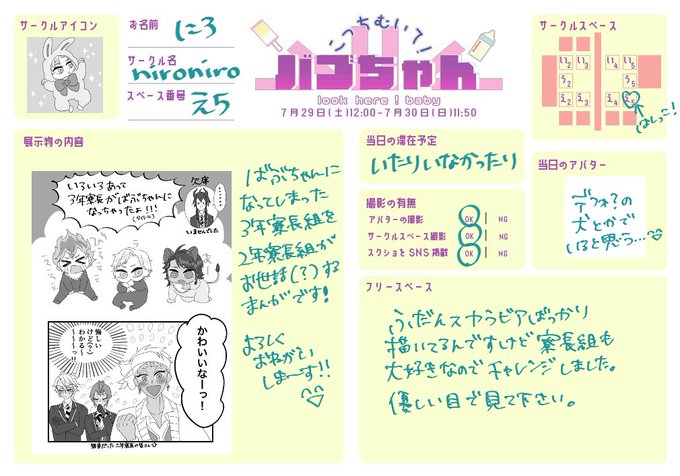 サークルアイコン
お名前
にろ
サークル名
nironiro
スペース番号
え5
こっちむいて!
バブちゃん
look here! baby
7月29日(土)12:00-7月30日(日)11:50
サークルスペース
い2
い3
い4
い5
う2
う5
え2
え3
え4
え5
はしっこ!
展示物の内容
いろいろあって
3年寮長がばぶちゃんに
なっちゃったよ!!!
欠席
いませんでした
かわいいなーっ!
悔しい
けど(?)
わかる〜
〜〜〜っ!!
ばぶちゃんに
なってしまった
3年寮長組を
2年寮長組が
お世話(?)する
まんがです!
よろしく
おねがい
しまーす!!
当日の滞在予定
いたりいなかったり
撮影の有無
アバターの撮影 OK | NG
サークルスペース撮影 OK | NG
スクショとSNS掲載 OK | NG
当日のアバター
デフォ?の
犬とかで
いると思う…
フリースペース
ふだんスカラビアばっかり
描いてるんですけど寮長組も
大好きなのでチャレンジしました。
優しい目で見て下さい。